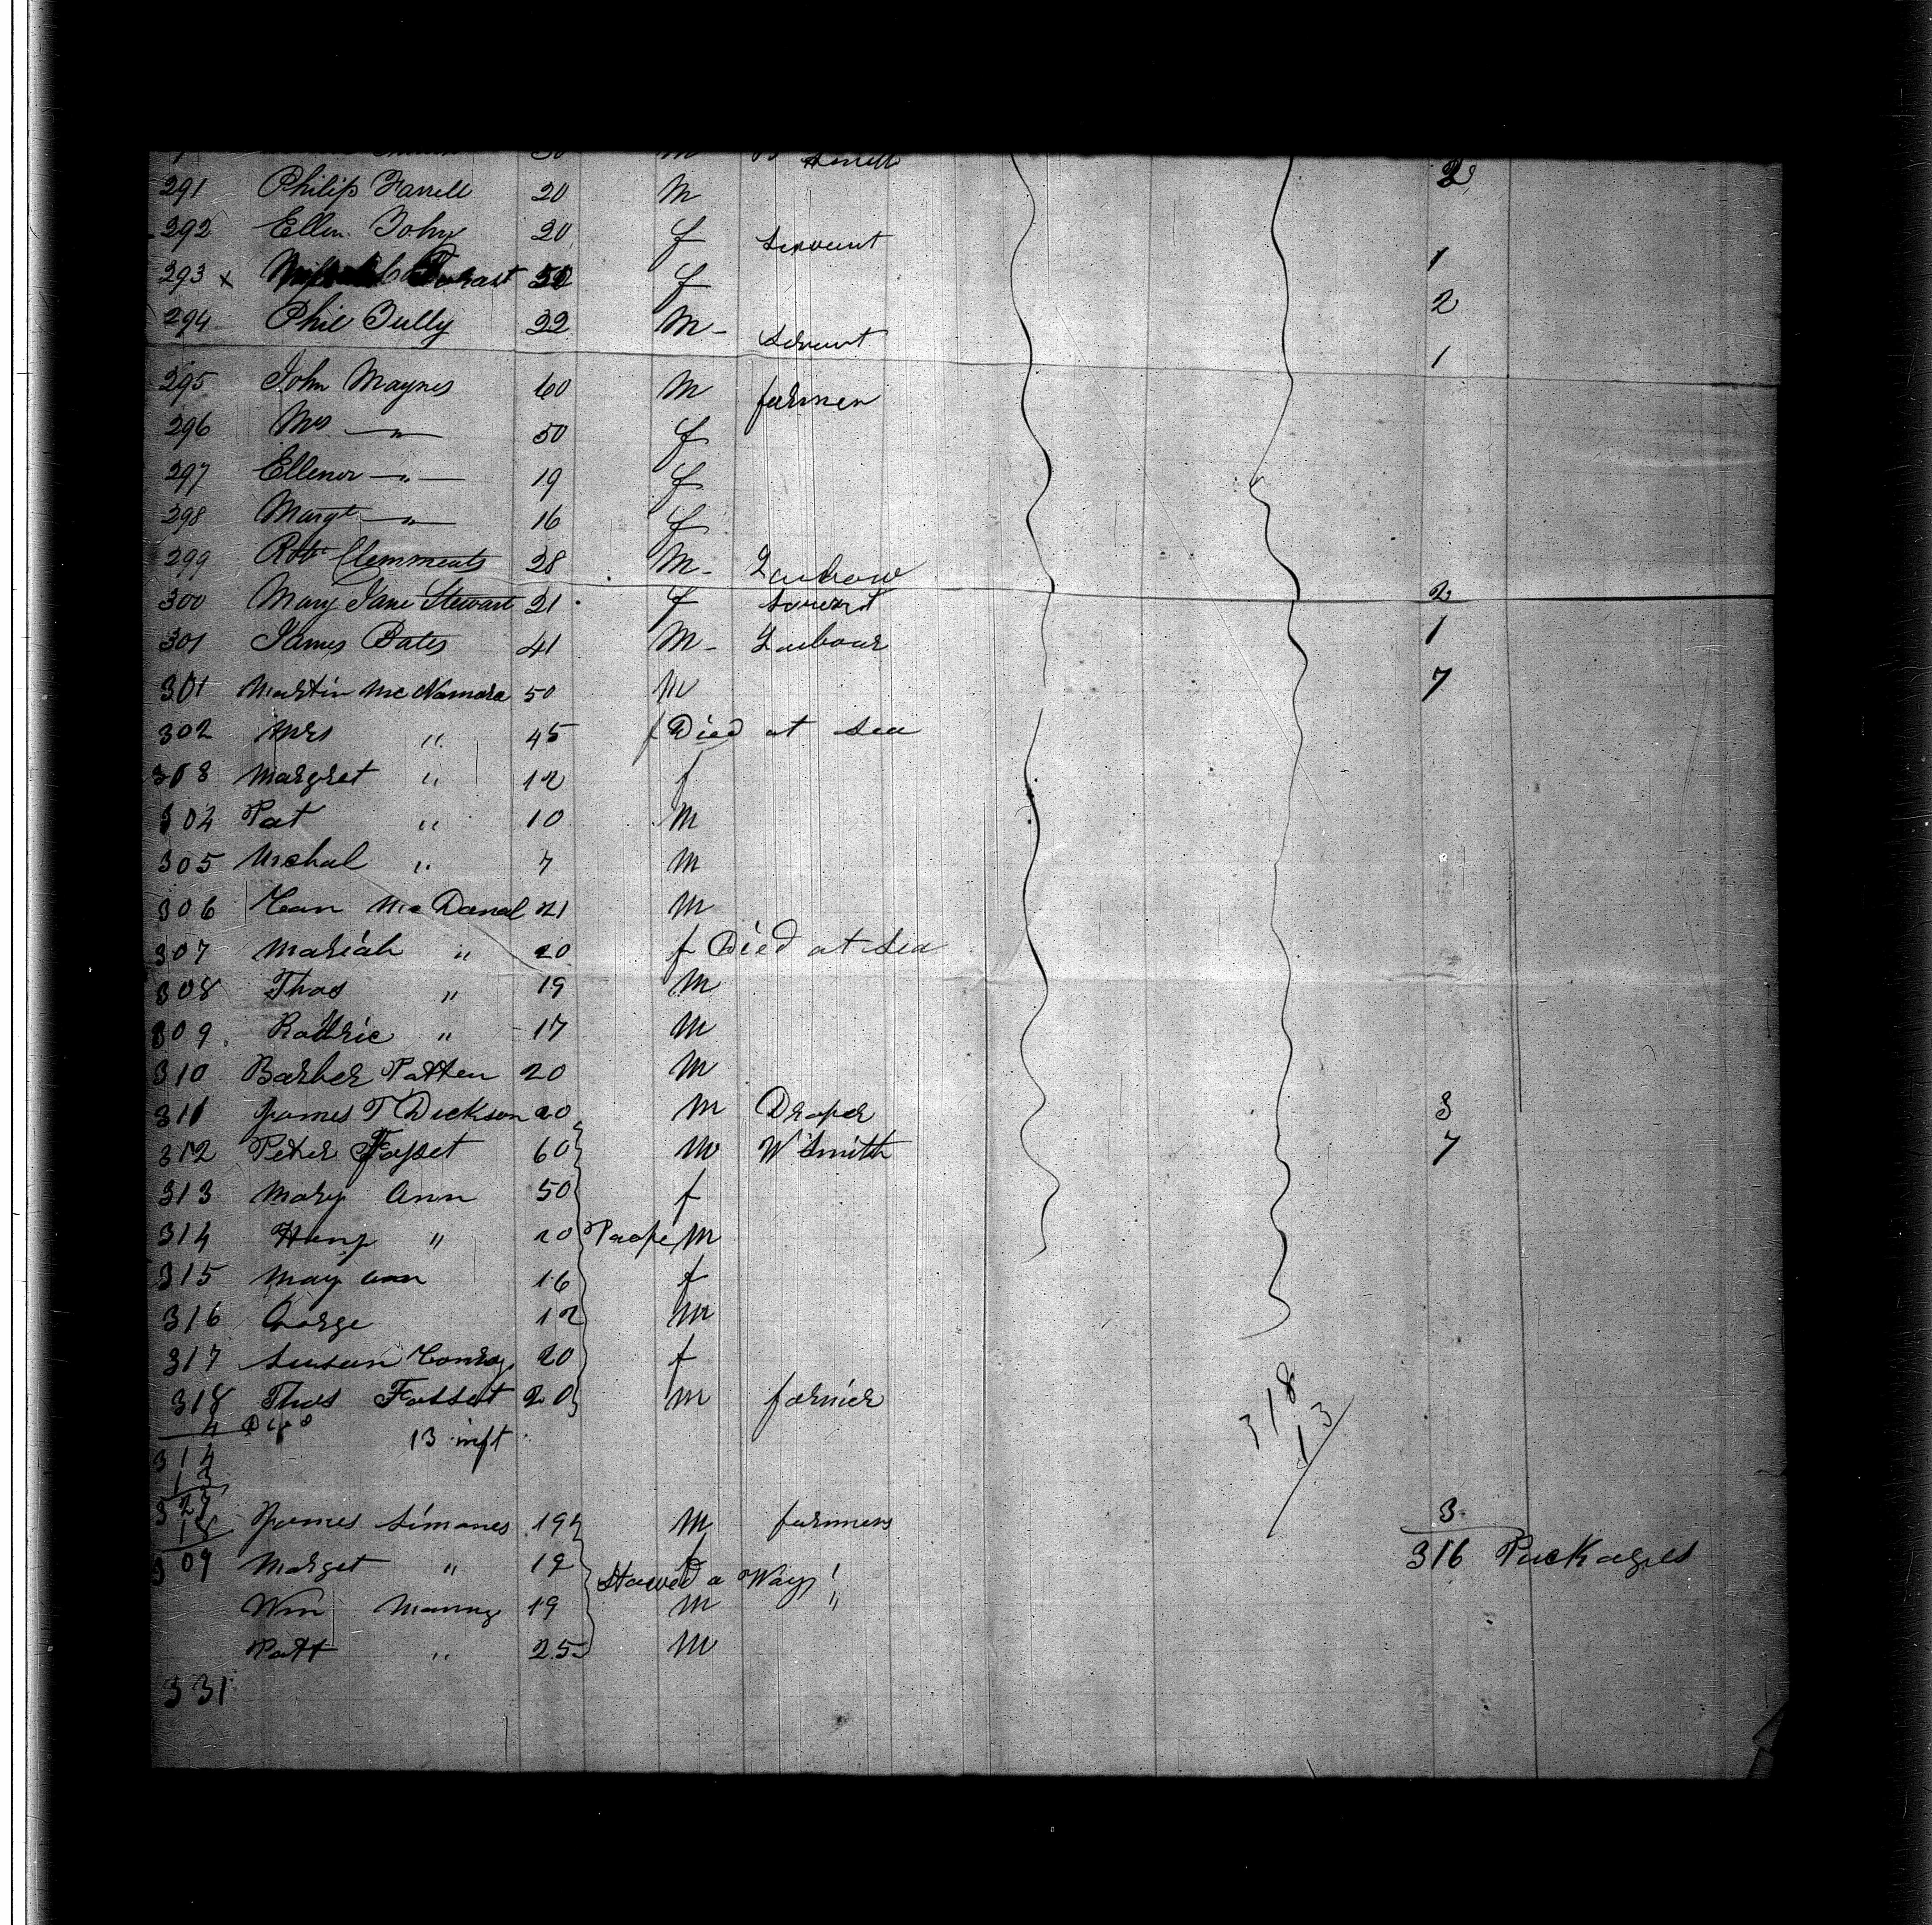 30 m
291 Philip Farrell 20 m 2
292 Ellen 20 f Servent 1
293 x 52 f 2
294 Phil Tully 22 M - Servent 1
295 John Maynes 60 M farmer
296 Mrs — " — 50 f
297 Ellenor — " — 19 f
298 Margt — " — 16 f
299 Robt Clemments 28 M -
300 Mary Jane Stewart 21 f Servent 2
301 James Bates 41 M - Labour 1
301 Martin Mc Namara 50 M 7
302 Mrs " 45 f Died at Sea
303 Margret " 12 f
304 Pat " 10 M
305 Michal " 7 M
306 Mc Danal 21 M
307 Mariah " 20 f Died at Sea
308 Thos " 19 M
309 Rodric " 17 M
310 Barber Patten 20 M
311 James T Dickson 20 M Draper 3
312 Peter 60 M W Smith 7
313 Mary Ann 50 f
314 " 20 M
315 May ann 16 f
316 Gorge 12 M
317 Susan Conroy 20 f
318 Thos Fossett 20 M farmer
4 Died 13 inft
318
13
314
13
327
18
James Simones 19 M farmers 3
309 Marget " 19 f 316 Packages
Stowed a Way ! "
Wm 19 M
Patt " 25 M
331